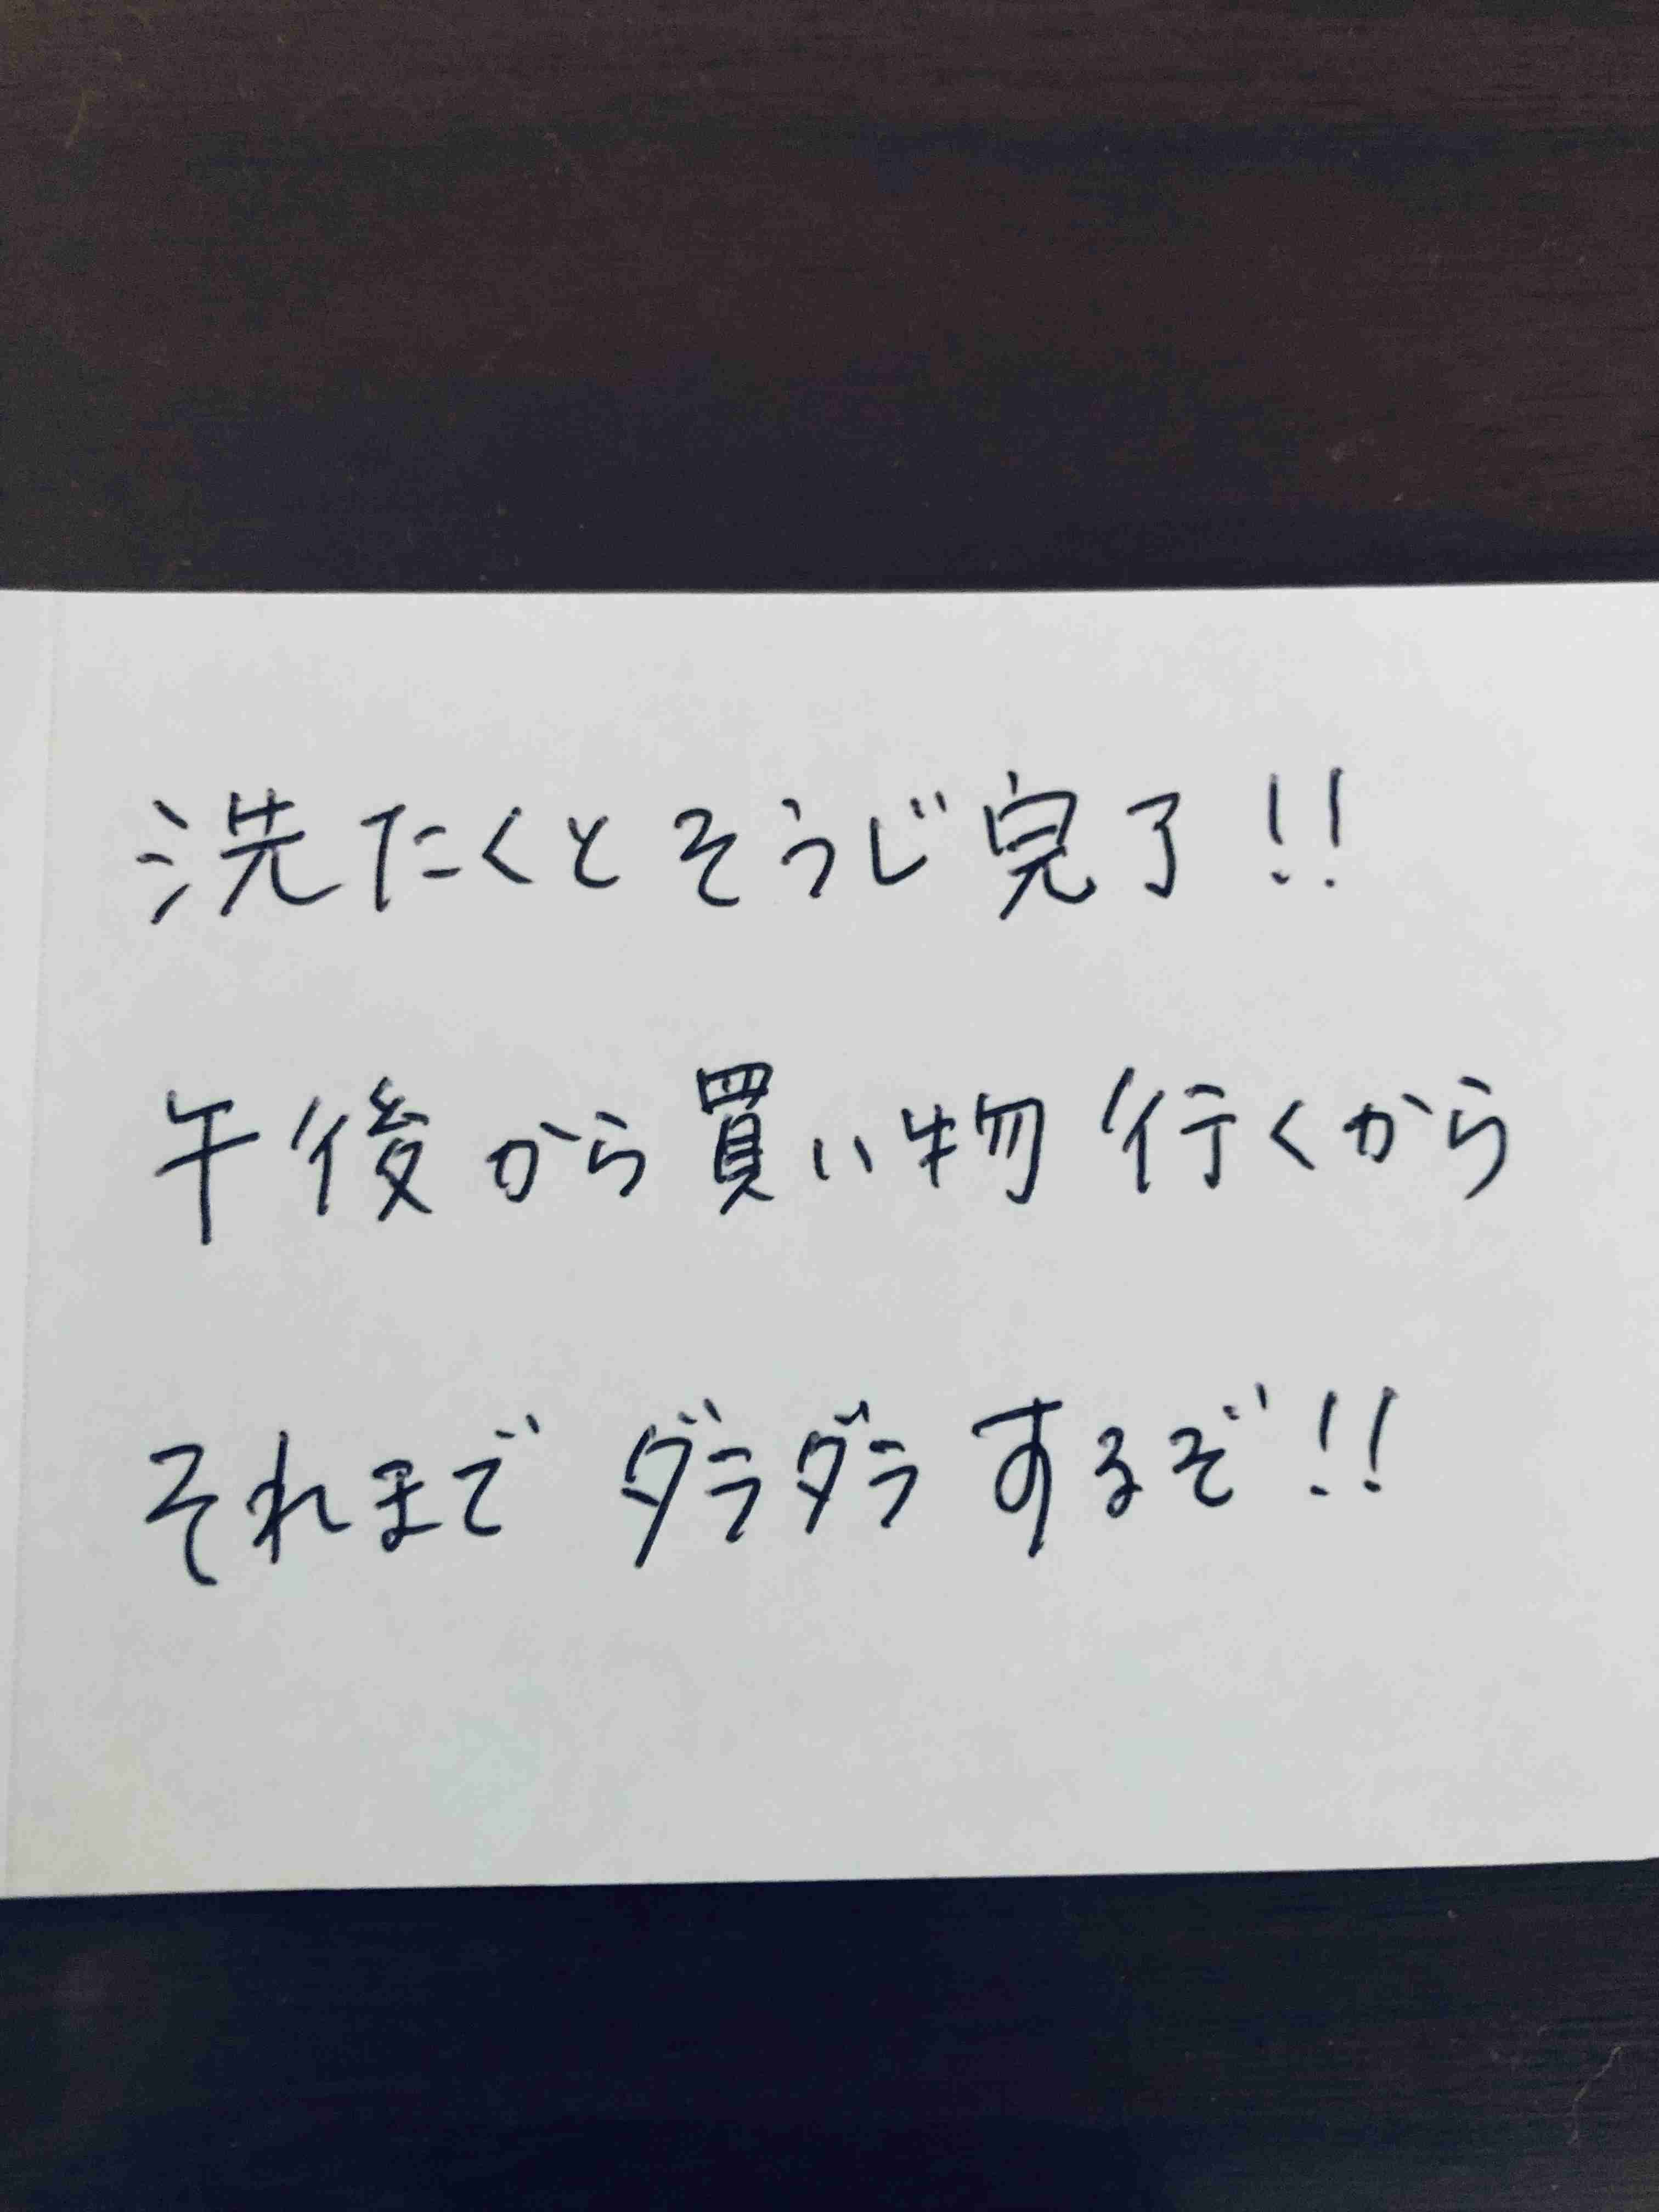 洗たくとそうじ完了!!
午後から買い物行くから
それまでダラダラするぞ!!